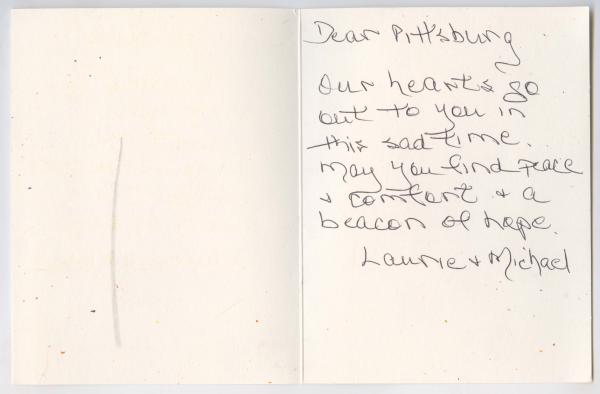 Dear Pittsburg
Our hearts go
out to you in
this sad time.
May you find peace
& comfort & a
beacon of hope.
Laurie & Michael